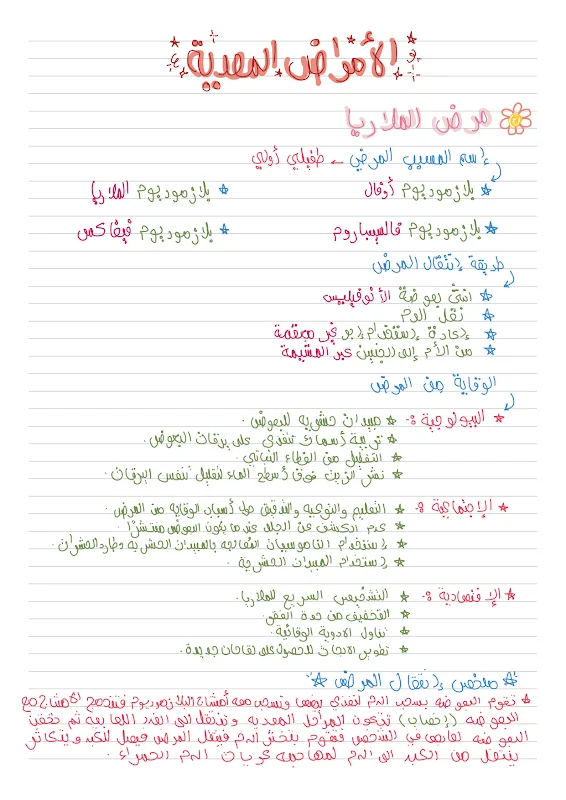 الأمراض المعدية
مرض الملاريا
إسم المسبب المرضي ← طفيلي أولي
★ بلازموديوم أوفال ★ بلازموديوم الملاريا
★ بلازموديوم فالسيباروم ★ بلازموديوم فيفاكس
طريقة إنتقال المرض
★ انثى بعوضة الأنوفيليس
★ نقل الدم
★ إعادة إستخدام إبر غير معقمة
★ من الأم إلى الجنين عبر المشيمة
الوقاية من المرض
★ البيولوجية :- ★ مبيدان حشريه للبعوض .
★ تربية أسماك تتغذى على يرقات البعوض .
★ التقليل من الغطاء النباتي .
★ نش الزيت فوق أسطح الماء لتقليل تنفس اليرقان .
★ الإجتماعية :- ★ التعليم والتوعيه والتدقيق على أسباب الوقايه من المرض .
★ عدم الكشف عن الجلد عندما يكون البعوض منتشرًا .
★ إستخدام الناموسيان المعالجه بالمبيدان الحشريه وطارد الحشران .
★ إستخدام المبيدان الحشرية .
★ الإقتصادية :- ★ التشخيص السريع للملاريا .
★ التخفيف من حدة الفقر .
★ تناول الادوية الوقائية .
★ تطوير الابحاث للحصول على لقاحات جديدة .
★ ملخص إنتقال المرض ★
★ تقوم البعوضه بسحب الدم لتغذي بيضها وتسحب معه أمشاج البلازموديوم فتندمج الأمشاج مع
البعوضه (إخصاب) تتكون المراحل المعديه و تنتقل الى الغدد اللعابيه ثم تحقن
البعوضه لعابها في الشخص فتقوم بتخثر الدم فينتقل المرض فيصل للكبد ويتكاثر
ينتقل من الكبد الى الدم لمهاجمه كريات الدم الحمراء .